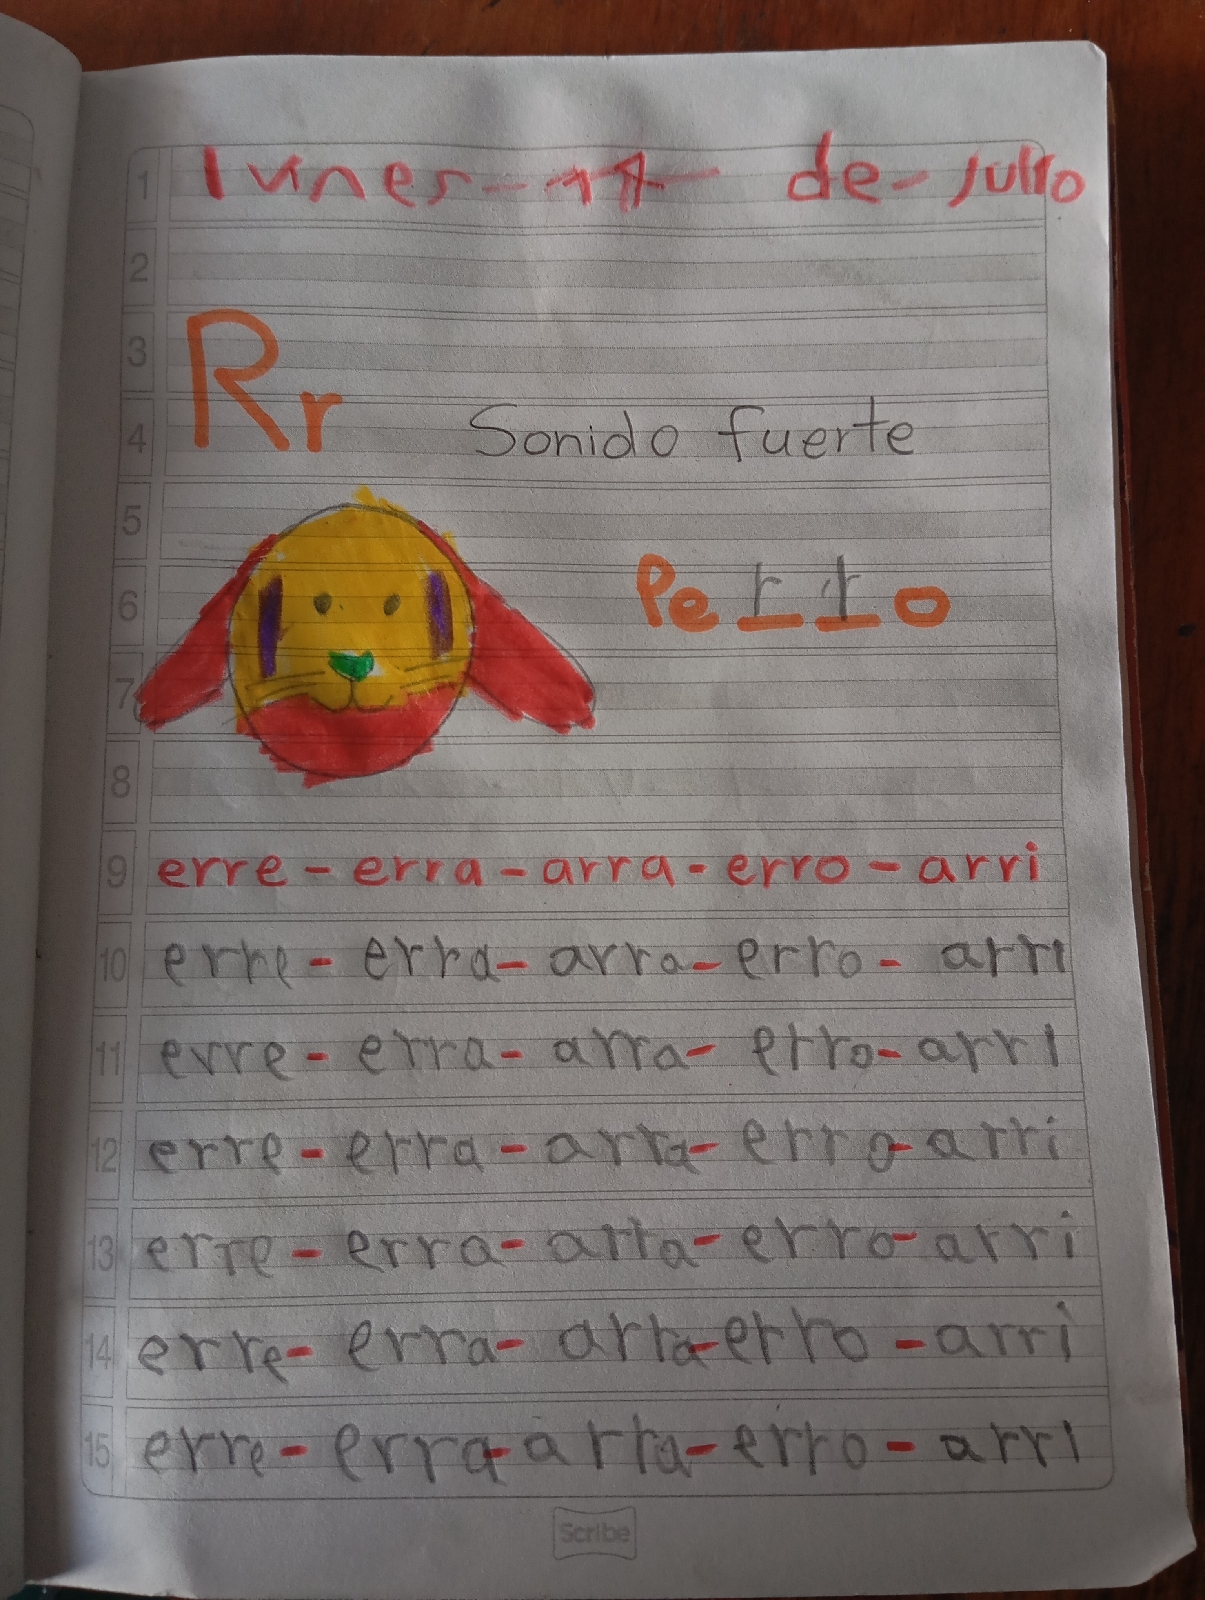 1 lunes-17- de-Julio
2
3
Rr
4 Sonido fuerte
5
6 Perro
7
8
9 erre-erra-arra-erro-arri
10 erre-erra-arra-erro-arri
11 erre-erra-arra-erro-arri
12 erre-erra-arra-erro-arri
13 erre-erra-arra-erro-arri
14 erre-erra-arra-erro-arri
15 erre-erra-arra-erro-arri
Scribe